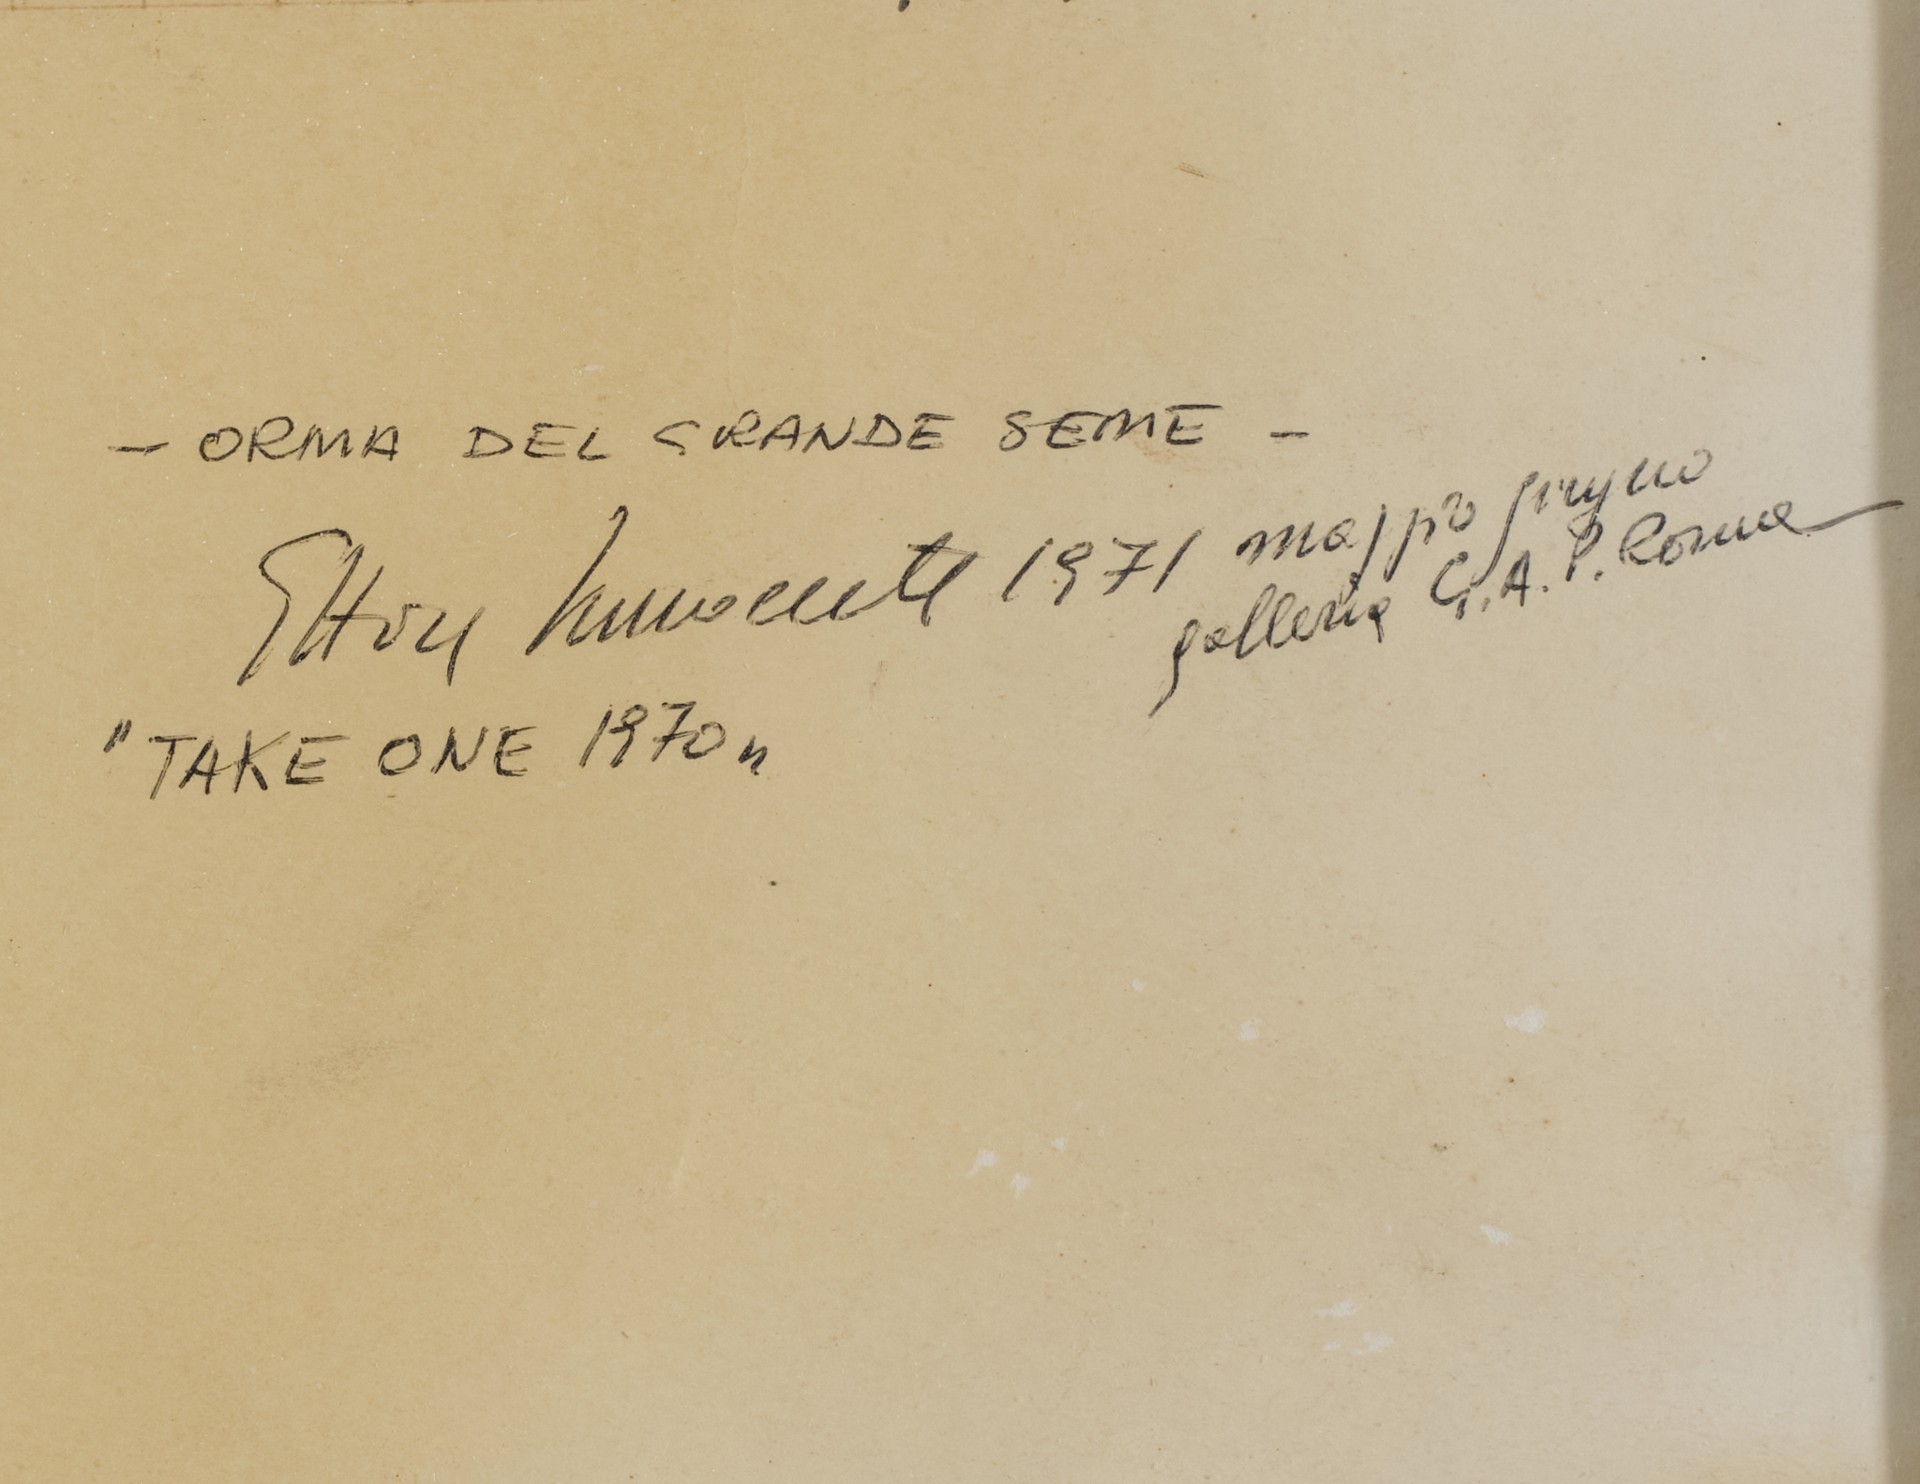 - ORMA DEL GRANDE SEME -
Ettore Innocente 1971 maggio giugno
galleria G.A.P. Roma
"TAKE ONE 1970"